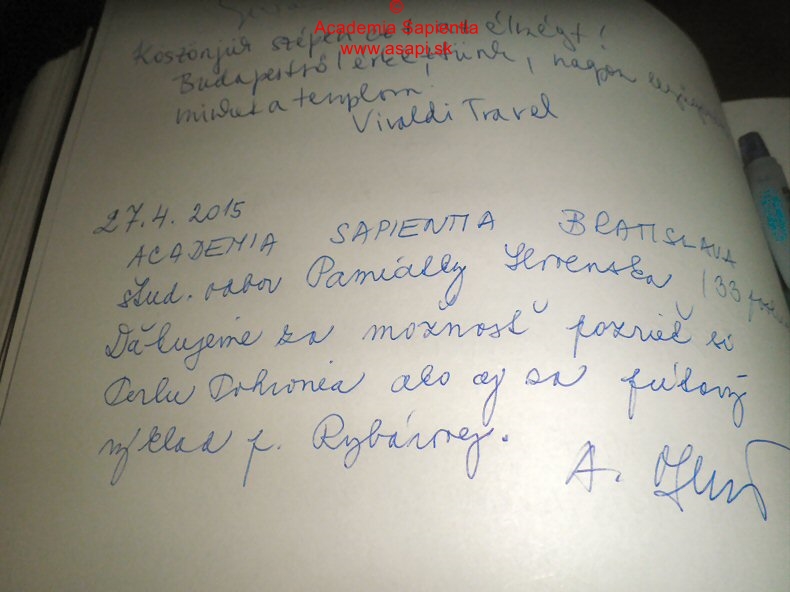 ©
Academia Sapientia
www.asapi.sk
Köszönjük szépen élményt!
Budapestről érkeztünk, nagyon
minket a templom!
Vivaldi Travel
27.4. 2015
ACADEMIA SAPIENTIA BRATISLAVA
štud. odbor Pamiatky Slovenska (33
Ďakujeme za možnosť pozrieť si
Perlu Pohronia ako aj za pútavý
výklad p. Rybárovej.
A.